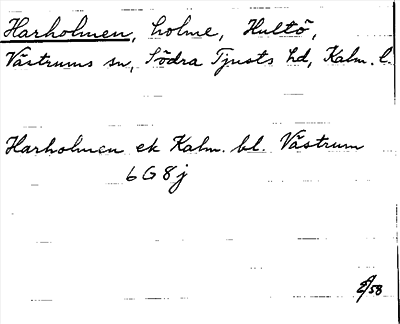 Harholmen, holme, Hultö,
Västrums sn, Södra Tjusts hd, Kalm. l.
Harholmen ek Kalm. bl. Västrum
6 G 8 j